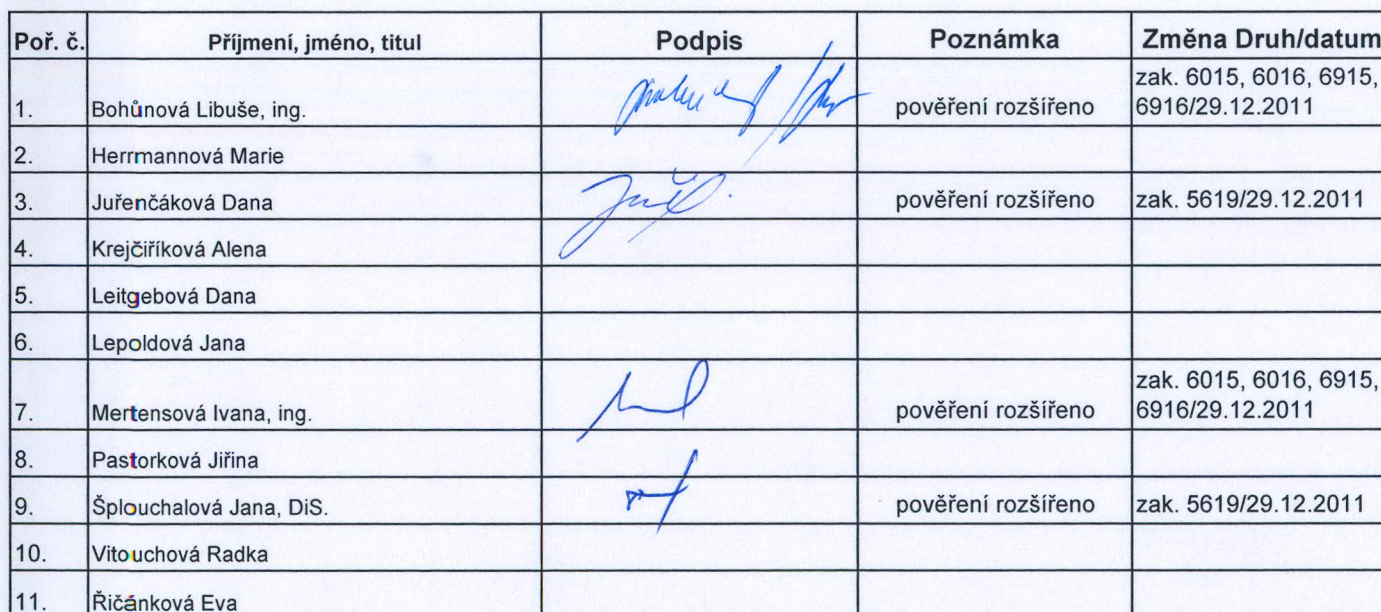 Poř. č. Příjmení, jméno, titul Podpis Poznámka Změna Druh/datum
zak. 6015, 6016, 6915,
1. Bohůnová Libuše, ing. pověření rozšířeno 6916/29.12.2011
2. Herrmannová Marie
3. Juřenčáková Dana pověření rozšířeno zak. 5619/29.12.2011
4. Krejčiříková Alena
5. Leitgebová Dana
6. Lepoldová Jana
zak. 6015, 6016, 6915,
7. Mertensová Ivana, ing. pověření rozšířeno 6916/29.12.2011
8. Pastorková Jiřina
9. Šplouchalová Jana, DiS. pověření rozšířeno zak. 5619/29.12.2011
10. Vitouchová Radka
11. Řičánková Eva